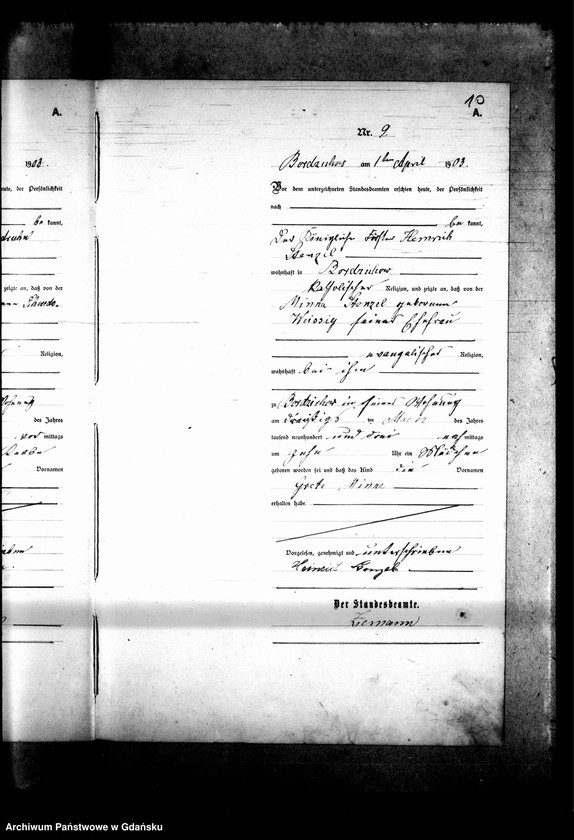 A.
1903.
ute, der Persönlichkeit
be kannt,
zeigte an, daß von der
Religion,
des Jahres
vor mittags
Vornamen
10
A.
Nr. 9.
am 1ten April 1903.
Vor dem unterzeichneten Standesbeamten erschien heute, der Persönlichkeit
nach
be kannt,
Der Königliche Förster Heinrich
Stenzel
wohnhaft in Bordzichow
katholischer Religion, und zeigte an, daß von der
Minna Stenzel geborenen
Weissig seiner Ehefrau
evangelischer Religion,
wohnhaft bei ihm
zu Bordzichow in seiner Wohnung
am dreißigsten März des Jahres
tausend neunhundert und drei nach mittags
um zehn Uhr ein Mädchen
geboren worden sei und daß das Kind die Vornamen
Grete Minna
erhalten habe.
Vorgelesen, genehmigt und unterschrieben
Heinrich Stenzel
Der Standesbeamte.
Ziemann
Archiwum Państwowe w Gdańsku